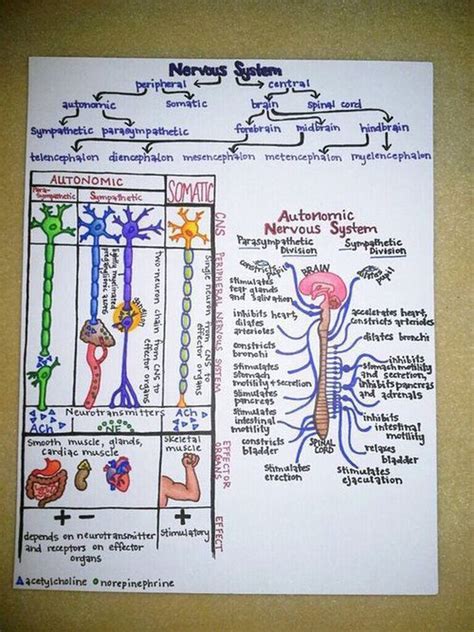 Nervous System
peripheral
central
autonomic
somatic
brain
spinal cord
Sympathetic
parasympathetic
forebrain
midbrain
hindbrain
telencephalon
diencephalon
mesencephalon
metencephalon
myelencephalon
AUTONOMIC
SOMATIC
Para-
Sympathetic
Sympathetic
CNS
PERIPHERAL NERVOUS SYSTEM
lightly myelinated
preganglionic axons
ganglion
Two-neuron chain from CNS to
effector organs
Single neuron from CNS to
effector organs
Neurotransmitters
ACh
NE
ACh
Smooth muscle, glands,
cardiac muscle
Skeletal
muscle
EFFECTOR
ORGANS
+ -
+
depends on neurotransmitter
and receptors on effector
organs
Stimulatory
EFFECT
acetylcholine
norepinephrine
Autonomic
Nervous System
Parasympathetic
Division
Sympathetic
Division
constricts
BRAIN
stimulates
tear glands
and salivation
inhibits heart,
dilates
arterioles
constricts
bronchi
stimulates
stomach
motility + secretion
stimulates
pancreas
stimulates
intestinal
motility
constricts
bladder
stimulates
erection
SPINAL
CORD
accelerates heart,
constricts arterioles
dilates bronchi
inhibits
stomach motility
and secretion,
inhibits pancreas
and adrenals
inhibits
intestinal
motility
relaxes
bladder
stimulates
ejaculation